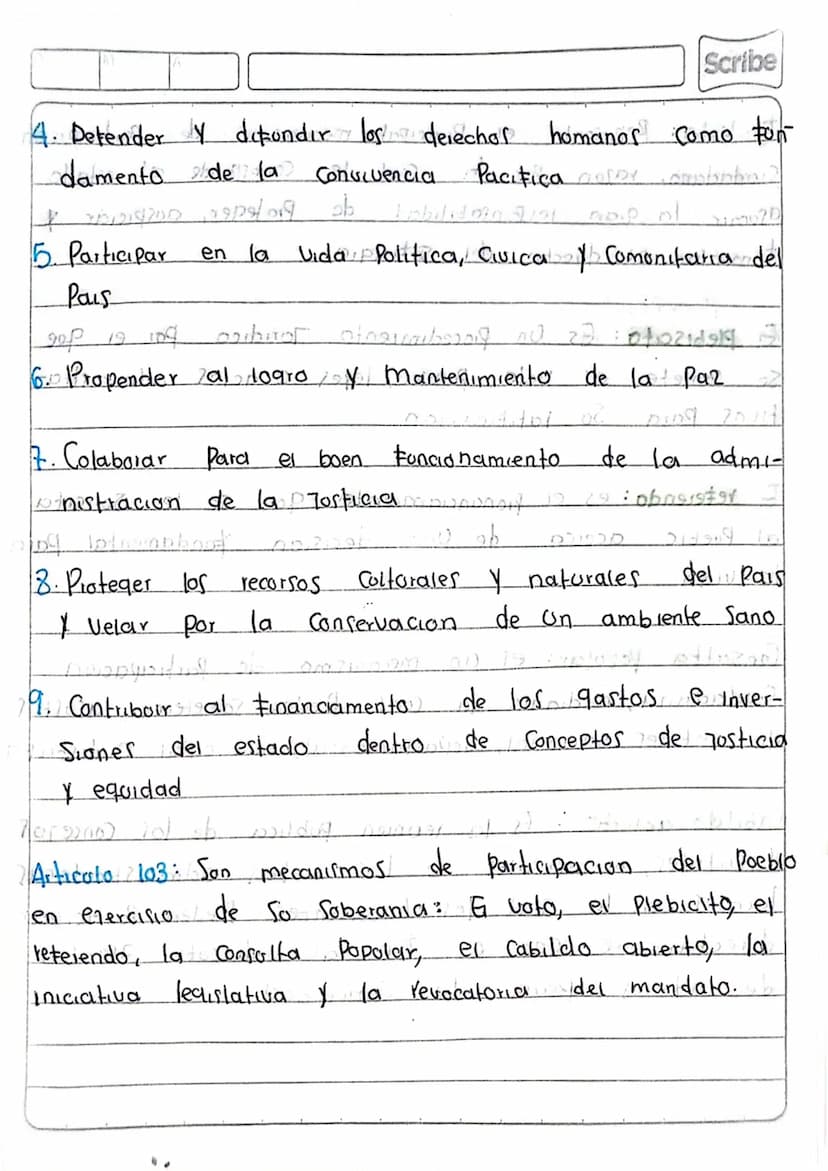 Scribe
4. Defender y difundir los derechos homanos como fun-
damento de la convivencia Pacifica
5. Participar en la vida Politica, Civica y Comunitaria del
Pais
6. Propender al logro y mantenimiento de la Paz
7. Colaborar Para el boen funcionamiento de la admi-
nistracion de la Josticia
8. Proteger los recorsos Coltorales y naturales del Pais
y Velar por la Conservacion de un ambiente Sano
9. Contriboir al financiamento de los gastos e inver-
siones del estado dentro de Conceptos de Josticia
y equidad
Articolo 103: Son mecanismos de Participacion del Poeblo
en ejercisio de So Soberania: El voto, el Plebicito, el
referendo, la Consolta Popolar, el Cabildo abierto, la
iniciativa legislativa y la revocatoria del mandato.